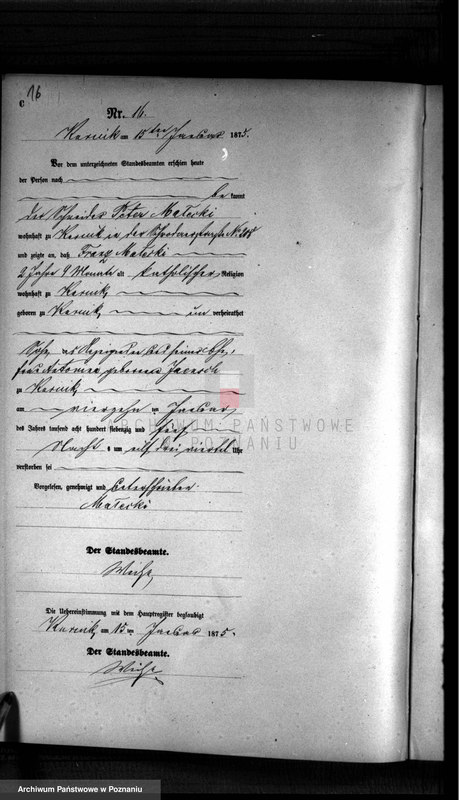 C 16
Nr. 16.
Kurnik am 15ten Januar 1875.
Vor dem unterzeichneten Standesbeamten erschien heute
der Person nach
be kannt
der Schneider Peter Małecki
wohnhaft zu Kurnik in der No. 208
und zeigte an, daß Franz Małecki
2 Jahre 9 Monate alt katholischer Religion
wohnhaft zu Kurnik
geboren zu Kurnik un verheirathet
Sohn des und seiner Ehe-
frau Antonina geborenen
zu Kurnik
am vierzehn ten Januar
des Jahres tausend acht hundert siebenzig und fünf
Nacht s um elf drei viertel Uhr
verstorben sei
Vorgelesen, genehmigt und unterschrieben
Małecki
Der Standesbeamte.
Die Uebereinstimmung mit dem Hauptregister beglaubigt
Kurnik am 15 ten Januar 1875.
Der Standesbeamte.
ARCHIWUM PAŃSTWOWE
W POZNANIU
Archiwum Państwowe w Poznaniu